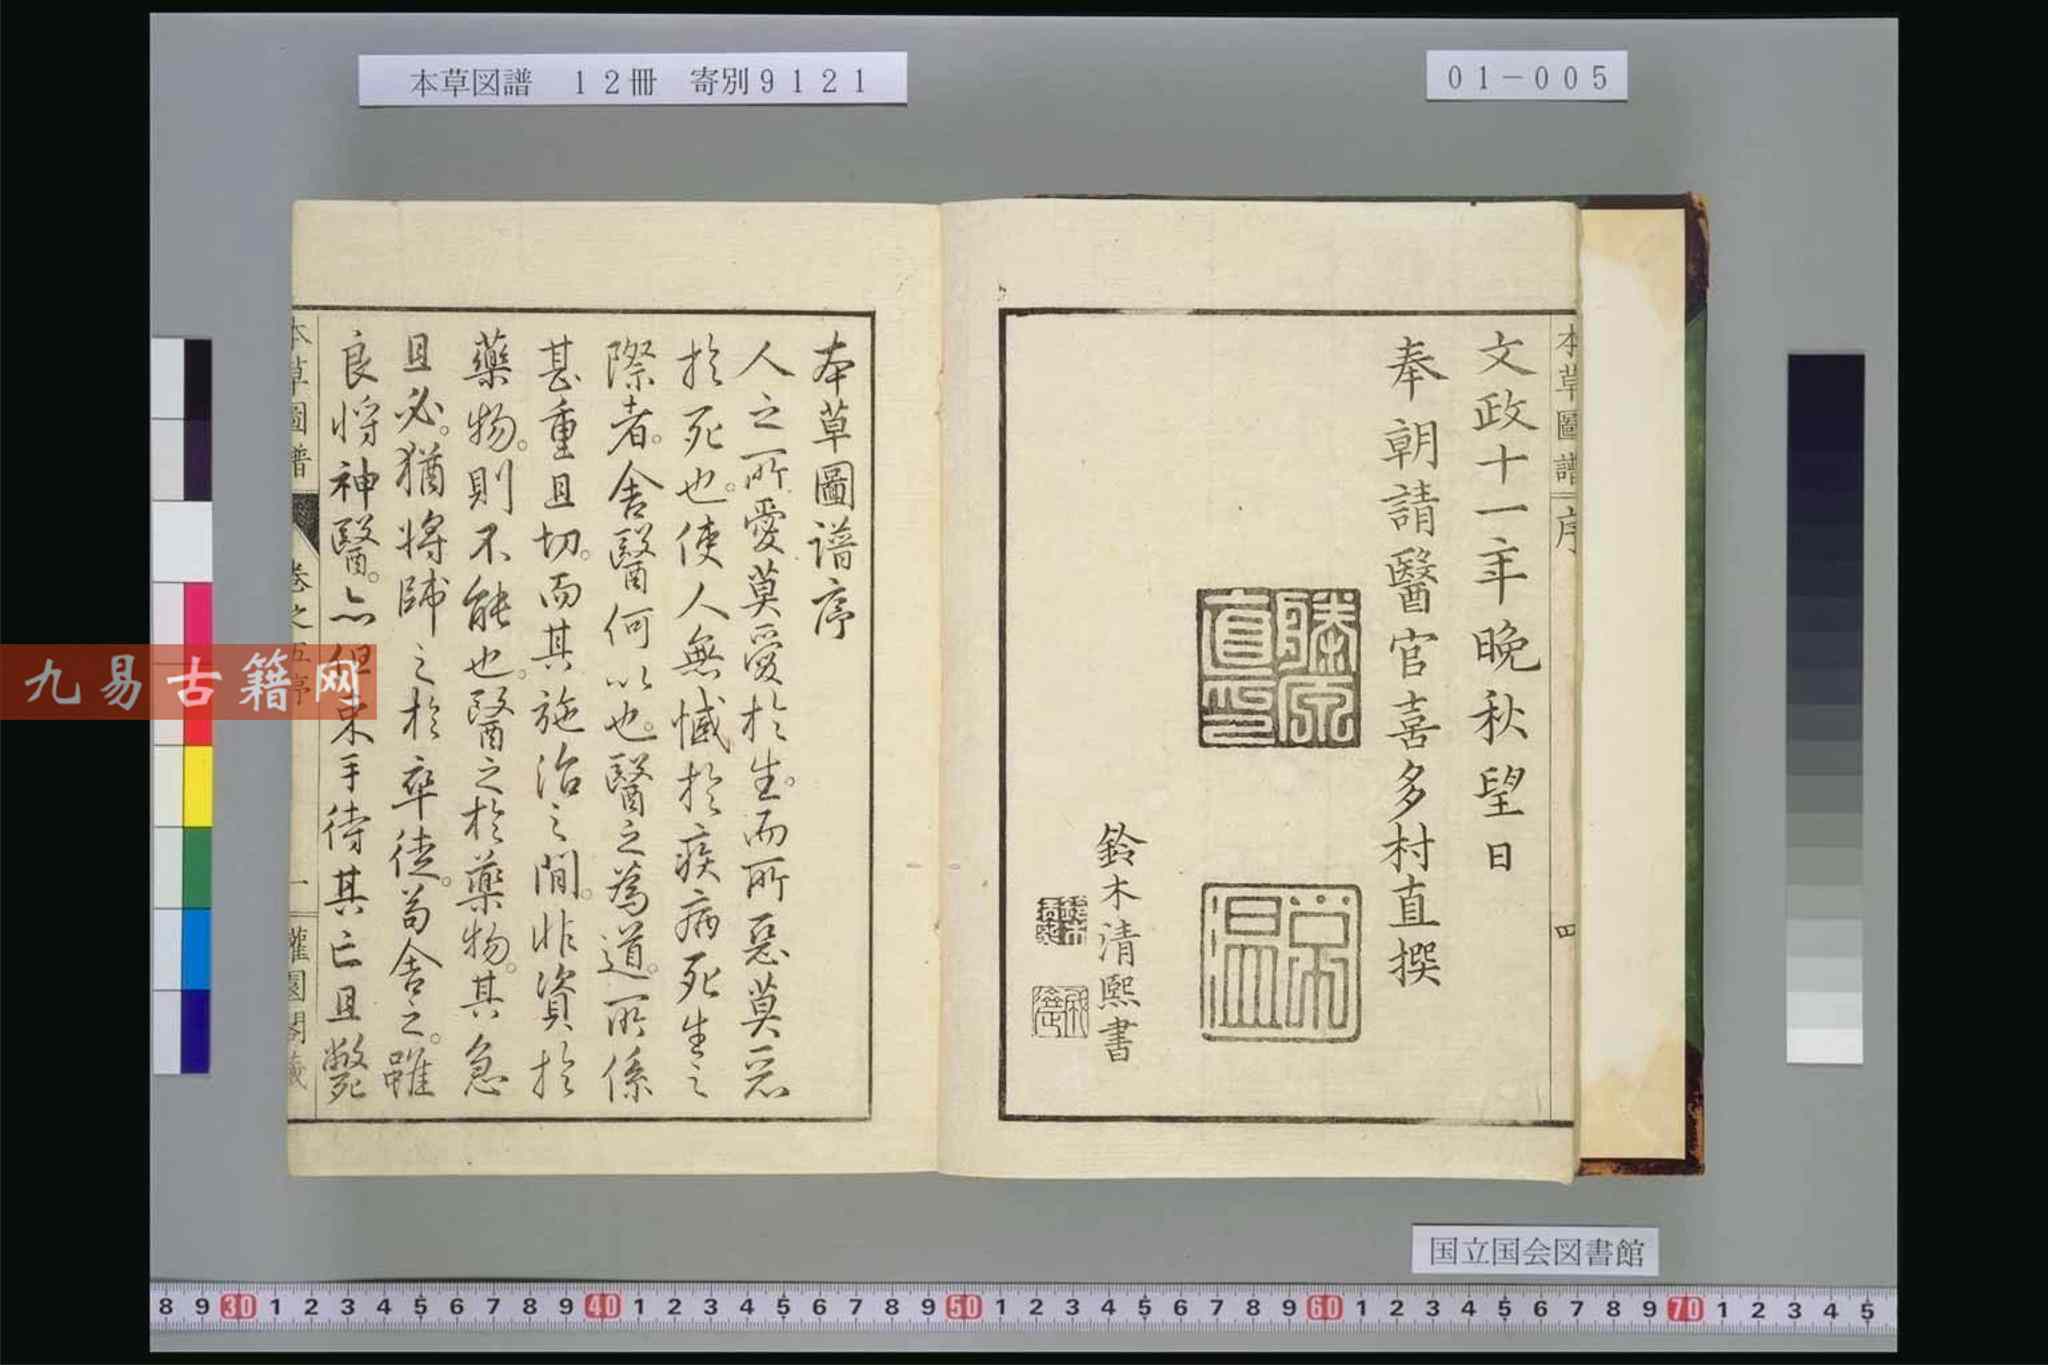 本草図譜　１２冊　寄別９１２１
０１－００５
本草圖譜 序 四
文政十一年晩秋望日
奉朝請醫官喜多村直撰
藤原直印
鈴木清熙書
本草圖譜序
人之所愛莫愛於生。而所惡莫惡
於死也。使人無憾於疾病死生之
際者。舍醫何以也。醫之為道。所係
甚重且切。而其施治之間。非資於
藥物。則不能也。醫之於藥物。其急
且必。猶將帥之於卒徒。苟舍之。雖
良將神醫。亦但束手待其亡且斃
本草圖譜 卷之五序 一 灌園閣藏
九易古籍网
国立国会図書館
8 9 30 1 2 3 4 5 6 7 8 9 40 1 2 3 4 5 6 7 8 9 50 1 2 3 4 5 6 7 8 9 60 1 2 3 4 5 6 7 8 9 70 1 2 3 4 5